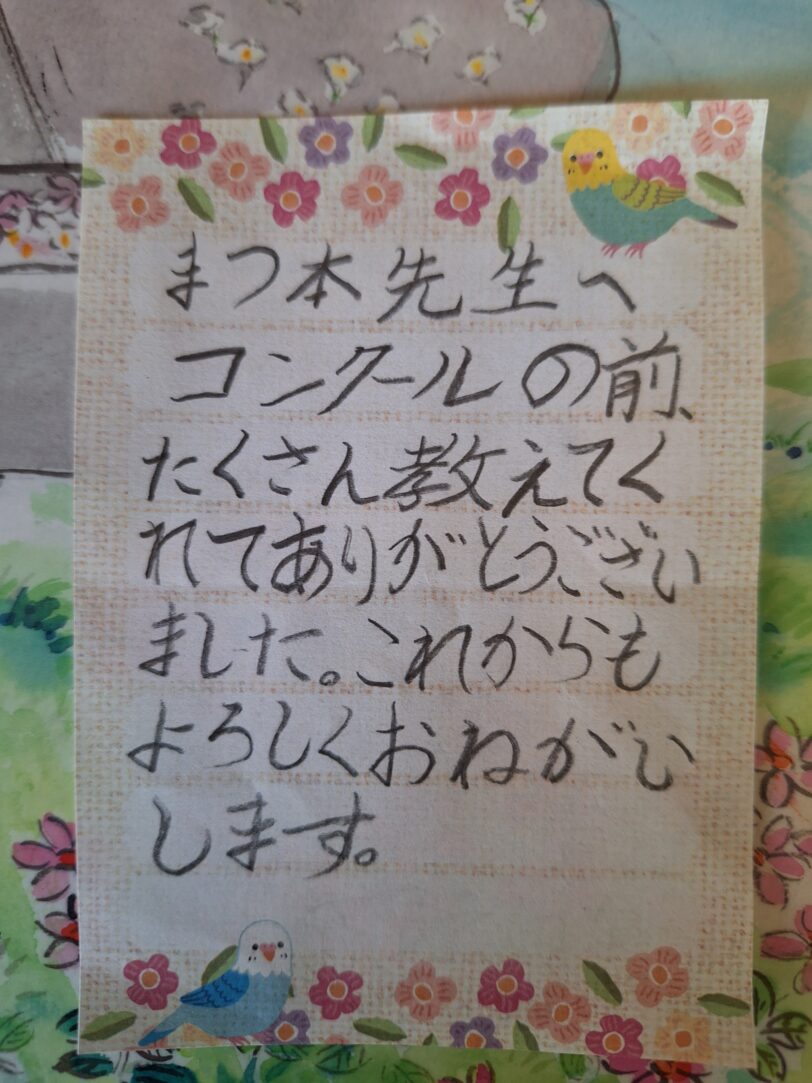 まつ本先生へ
コンクールの前、
たくさん教えてく
れてありがとうござい
ました。これからも
よろしくおねがい
します。